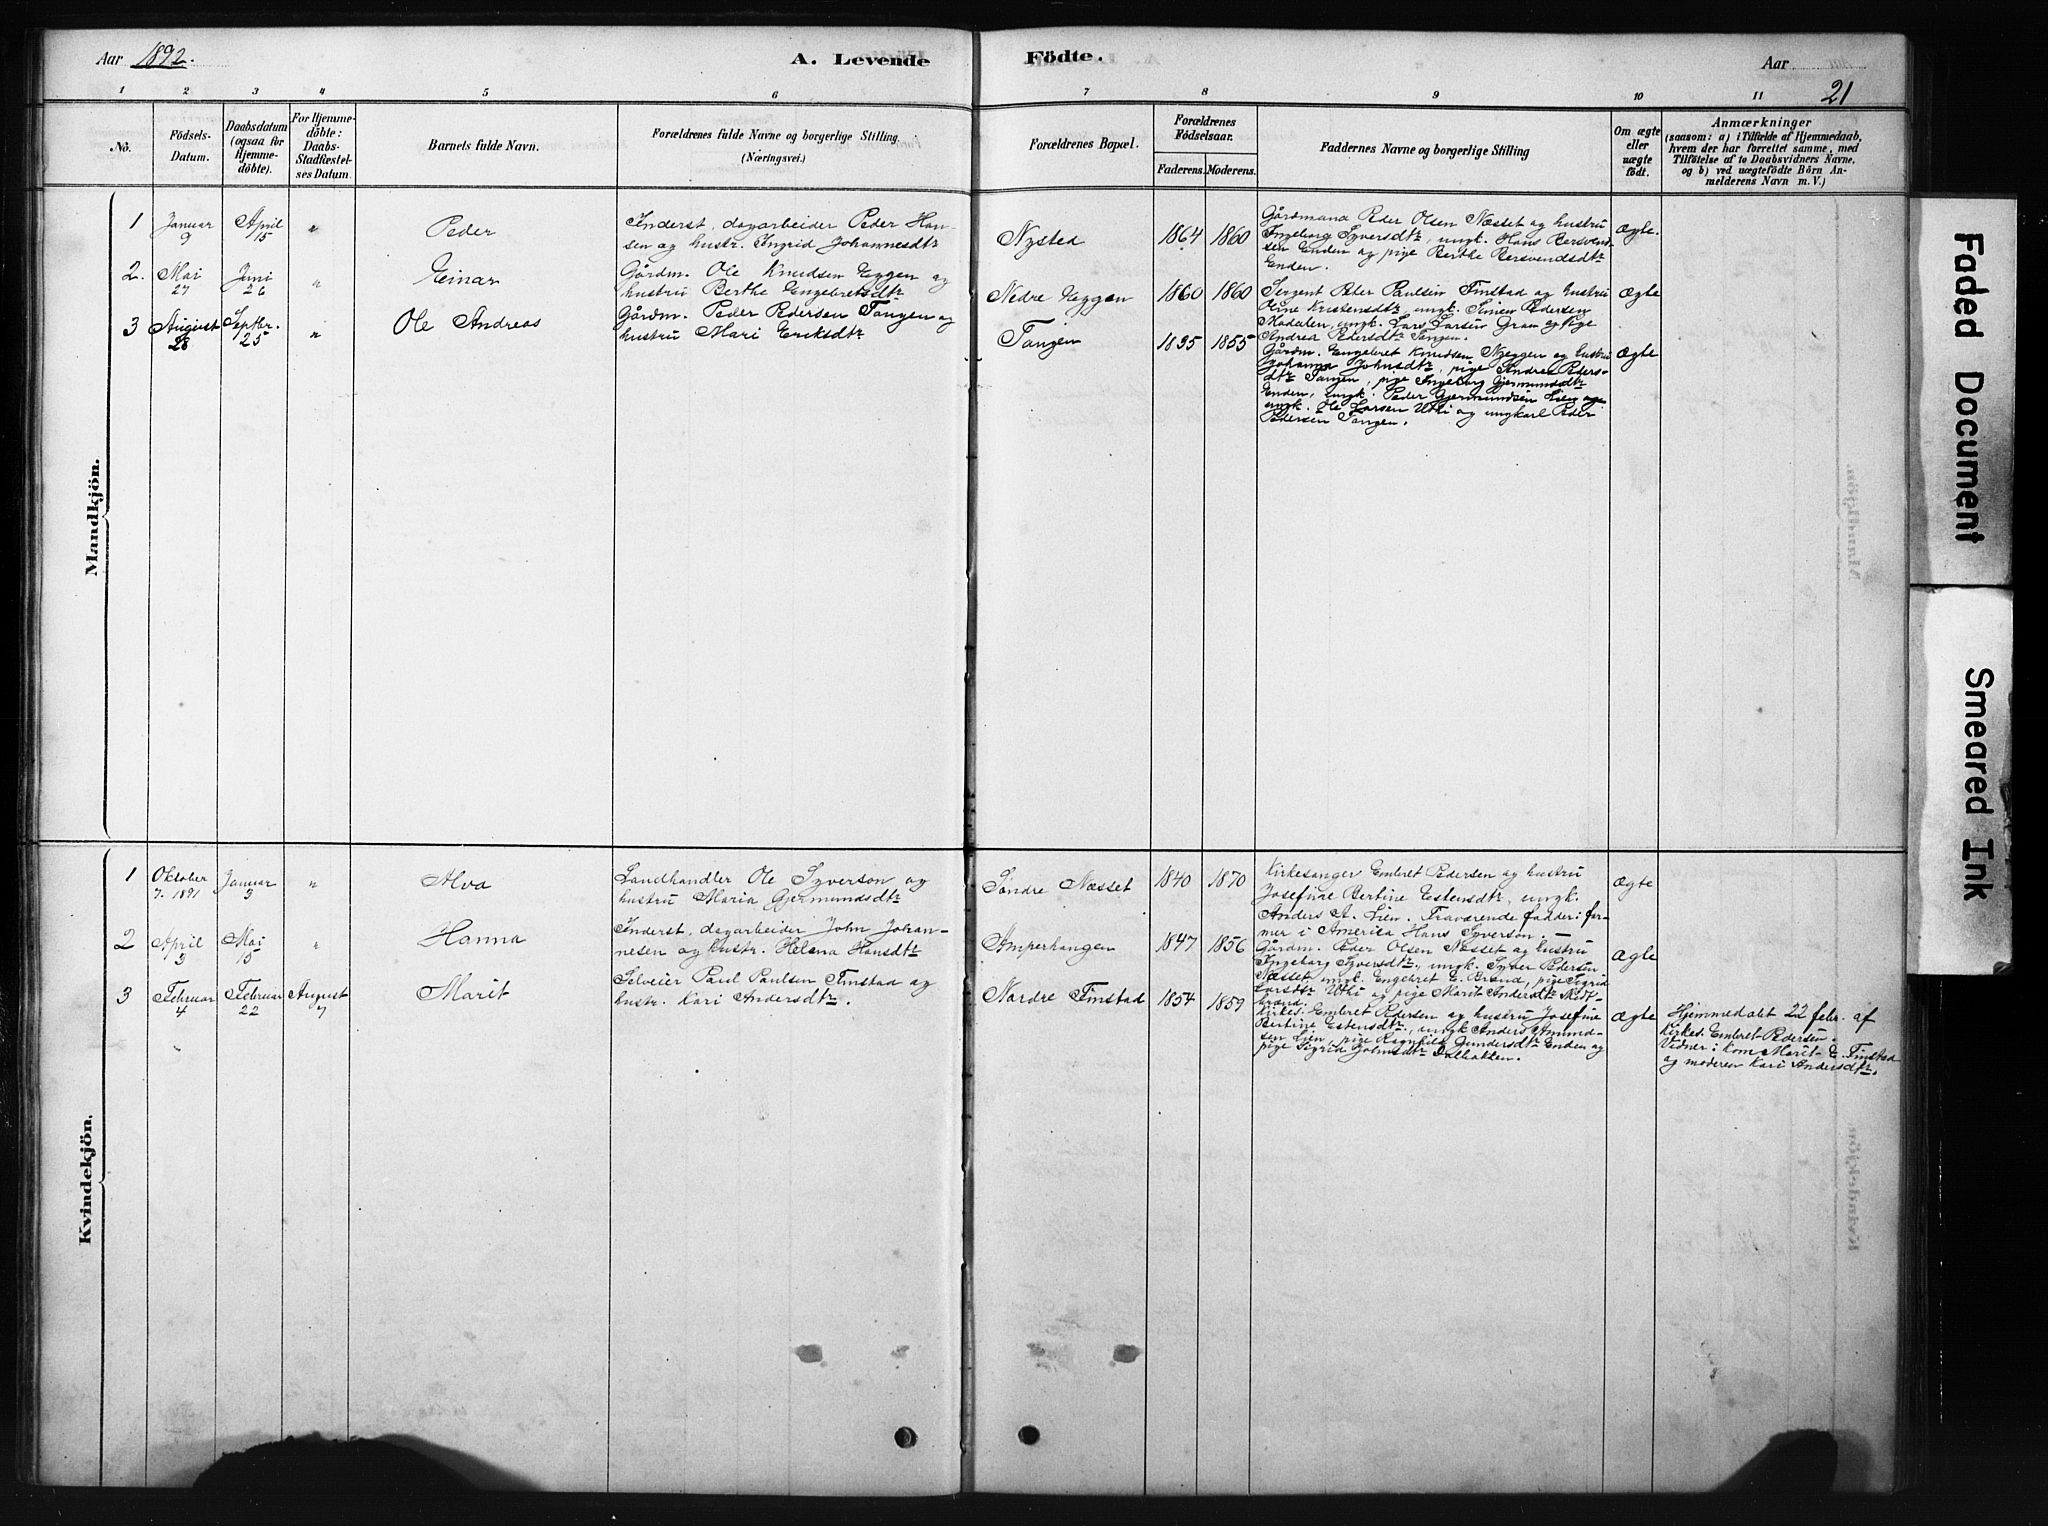 Aar 1892.
A. Levende
Födte.
Aar
21
1 2 3 4 5 6 7 8 9 10 11
No.
Födsels-
Datum.
Daabsdatum
(ogsaa for
Hjemme-
döbte).
For Hjemme-
döbte:
Daabs-
Stadfæstel-
ses Datum.
Barnets fulde Navn.
Forældrenes fulde Navne og borgerlige Stilling.
(Næringsvei.)
Forældrenes Bopæl.
Forældrenes
Födselsaar.
Faderens. Moderens.
Faddernes Navne og borgerlige Stilling
Om ægte
eller
uægte
födt.
Anmærkninger
(saasom: a) i Tilfælde af Hjemmedaab,
hvem der har forrettet samme, med
Tilföielse af to Daabsvidners Navne.
og b) ved uægtefödte Börn An-
melderens Navn m. V.)
Mandkjön.
1
Januar
9
April
15
"
Peder
Inderst, dagarbeider Peder Han-
sen og hustr. Ingrid Johannesdtr
Nysted
1864 1860
Gårdmand Peder Olsen Næsset og hustru
Ingeborg Syversdtr, ungk. Hans Bersvend-
sen Enden og pige Berthe Bersvendsdtr
Enden.
Ægte.
2.
Mai
27
Juni
26
"
Einar
Gårdm. Ole Knudsen Eggen og
hustru Berthe Engebretsdtr
Nedre Eggen
1860 1860
Sergent Peder Paulsen Finstad og hustru
Oline Kristensdtr, ungk. Simen Pedersen
Modalen, ungk. Lars Larsen Gram og Pige
Andrea Pedersdtr Tangen.
Ægte
3
August
28
Septbr.
25
"
Ole Andreas
Gårdm. Peder Pedersen Tangen og
hustru Mari Eriksdtr
Tangen
1835 1855
Gårdm. Engebret Knudsen Nyeggen og hustru
Johanna Johnsdtr, pige Andrea Peders-
dtr Tangen, pige Ingeborg Gjermundsdtr
Enden, ungk. Peder Gjermundsen Lien og
ungk. Ole Larsen Uthi og ungkarl Peder
Pedersen Tangen.
Ægte
Kvindekjön.
1
Oktober
7. 1891
Januar
3
"
Alva
Landhandler Ole Syverson og
hustru Maria Gjermundsdtr
Søndre Næsset
1840 1870
Kirkesanger Embret Pedersen og hustru
Josefine Bertine Estensdtr, ungk.
Anders A. Lien. Fraværende fadder: far-
mer i Amerika Hans Syverson. —
Ægte
2
April
3
Mai
15
"
Hanna
Inderst, dagarbeider John Johan-
nesen og hustr. Helena Hansdtr
Amperhaugen
1847 1856
Gårdm. Peder Olsen Næsset og hustru
Ingeborg Syversdtr, ungk. Syver Pedersen
Næsset, ungk. Engebret E. Brænd, pige Sigrid
Larsdtr Uthi og pige Marit Andersdtr
Ægte
3
Februar
4
Februar
22
August
7
Marit
Selveier Paul Paulsen Finstad og
hustr. Kari Andersdtr.
Nordre Finstad
1854 1859
Kirkes. Embret Pedersen og hustru Josefine
Bertine Estensdtr, ungk Anders Amund-
sen Lien, pige Ragnhild Gundersdtr Enden og
pige Sigrid Johnsdtr Dalbakken.
Ægte
Hjemmedøbt 22 febr. af
Kirkes. Embret Pedersen.
Vidner: kom Marit E. Finstad
og moderen Kari Andersdtr.
Faded Document
Smeared Ink